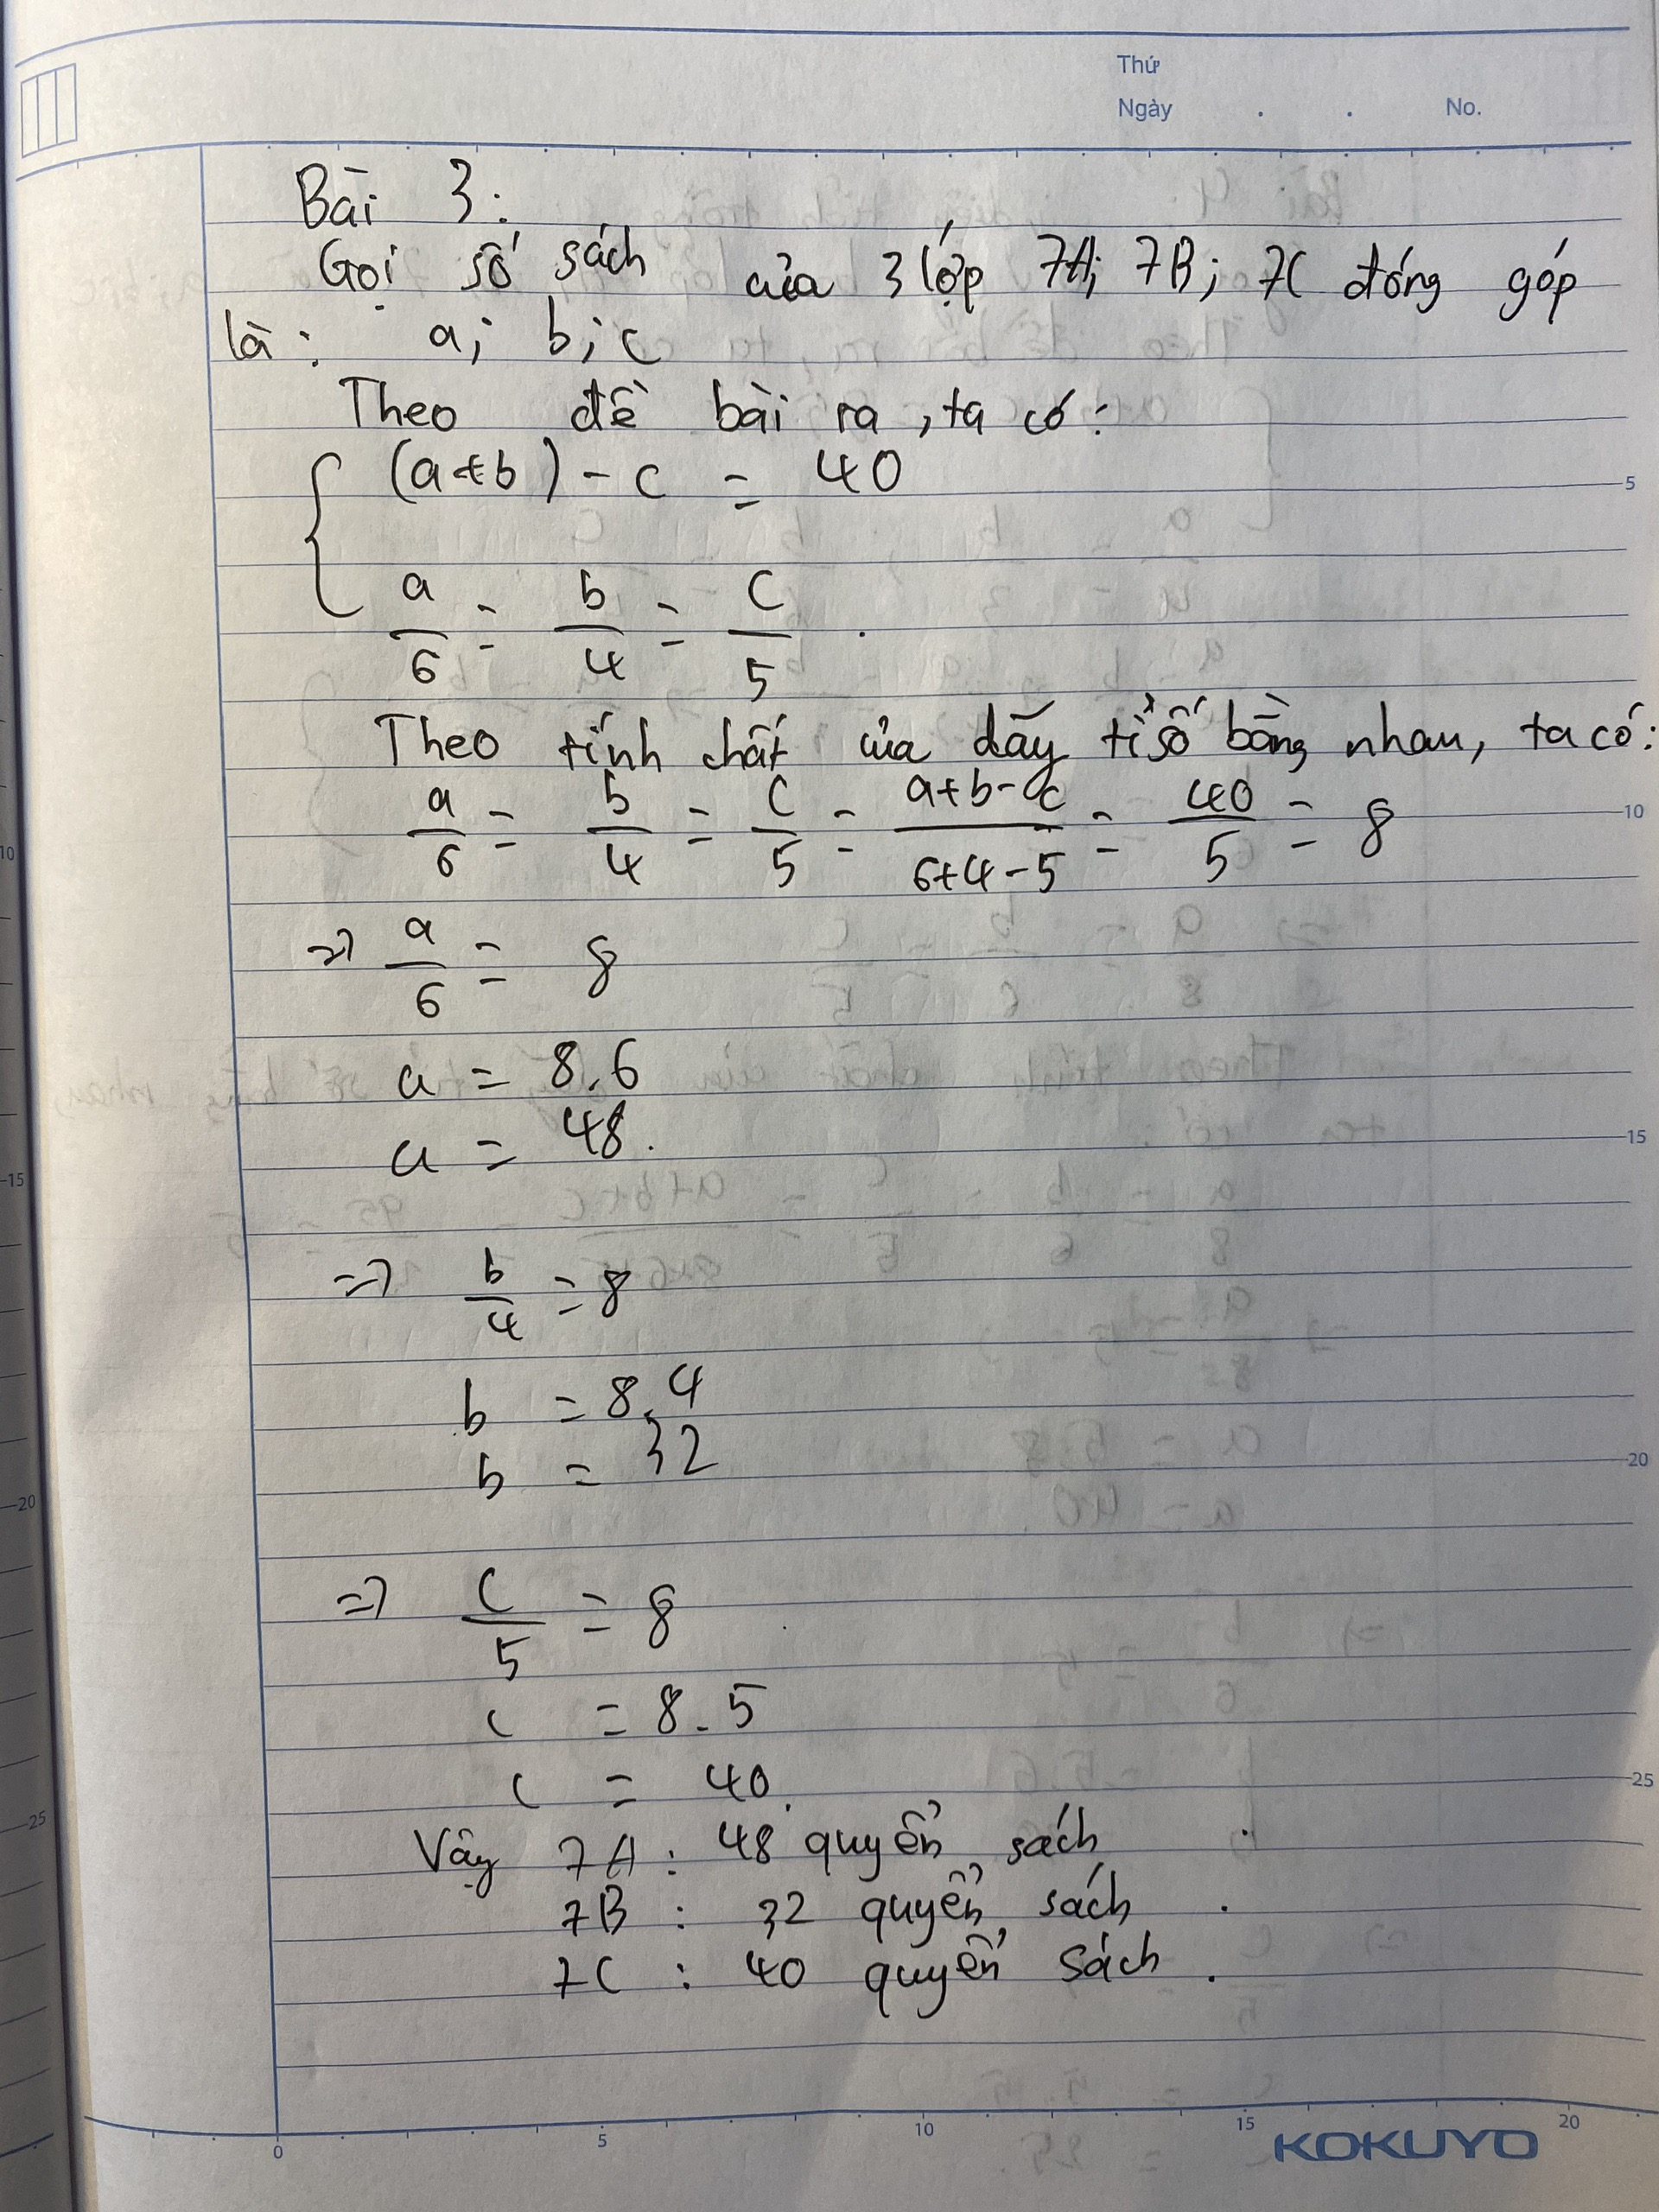 Thứ
Ngày . . No.
Bài 3:
Gọi số sách của 3 lớp 7A; 7B; 7C đóng góp
là: a; b; c
Theo đề bài ra, ta có:
{ (a+b) - c = 40
a/6 = b/4 = c/5 .
Theo tính chất của dãy tỉ số bằng nhau, ta có:
a/6 = b/4 = c/5 = a+b-c/6+4-5 = 40/5 = 8
=> a/6 = 8
a = 8.6
a = 48.
=> b/4 = 8
b = 8.4
b = 32
=> c/5 = 8
c = 8.5
c = 40.
Vậy 7A: 48 quyển sách .
7B : 32 quyển sách .
7C : 40 quyển sách .
KOKUYO